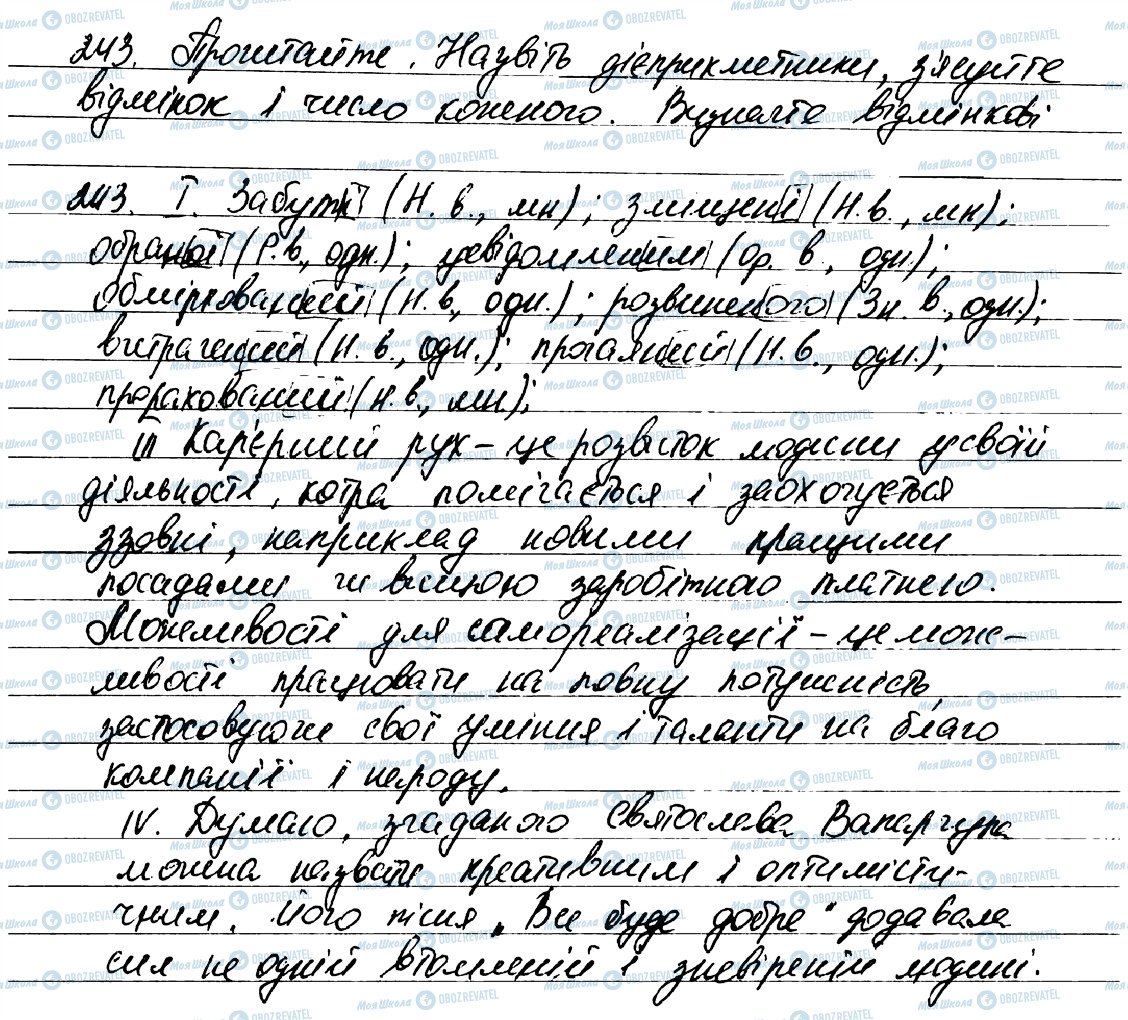 243. Прочитайте. Назвіть дієприкметники, з'ясуйте
відмінок і число кожного. Визначте відмінкові
243. I. Забуті (Н. в., мн); зміщені (Н. в., мн);
обраної (Р. в, одн.); усвідомленим (Ор. в., одн.);
обміркований (Н. в, одн.); розвиненого (Зн. в., одн.);
витрачений (Н. в., одн.); прогаяний (Н. в., одн.);
прорахований (Н. в., мн);
III Кар'єрний рух – це розвиток людини у своїй
діяльності, котра помічається і заохочується
ззовні, наприклад новими кращими
посадами чи вищою заробітною платнею.
Можливості для самореалізації – це мож-
ливості працювати на повну потужність
застосовуючи свої уміння і таланти на благо
компанії і народу.
IV. Думаю, згаданого Святослава Вакарчука
можна назвати креативним і оптимісти-
чним. Його пісня „Все буде добре" додавала
сил не одній втомленій і зневіреній людині.